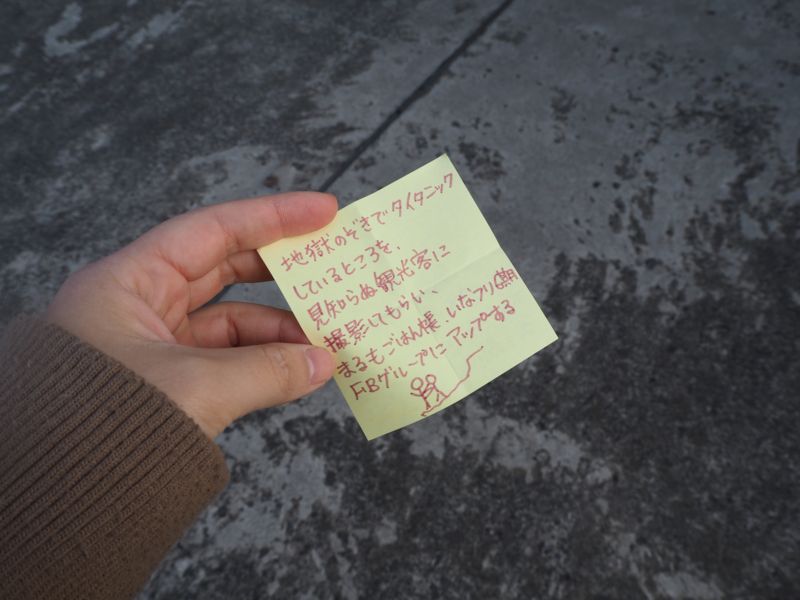 地獄のぞきでタイタニック
しているところを、
見知らぬ観光客に
撮影してもらい、
まるもごはん帳、しなフリ
FBグループにアップする